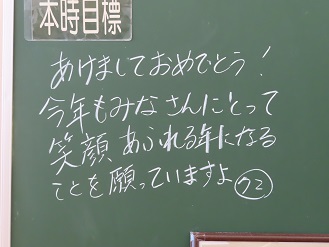 本時目標
あけましておめでとう！
今年もみなさんにとって
笑顔あふれる年になる
ことを願っていますよ